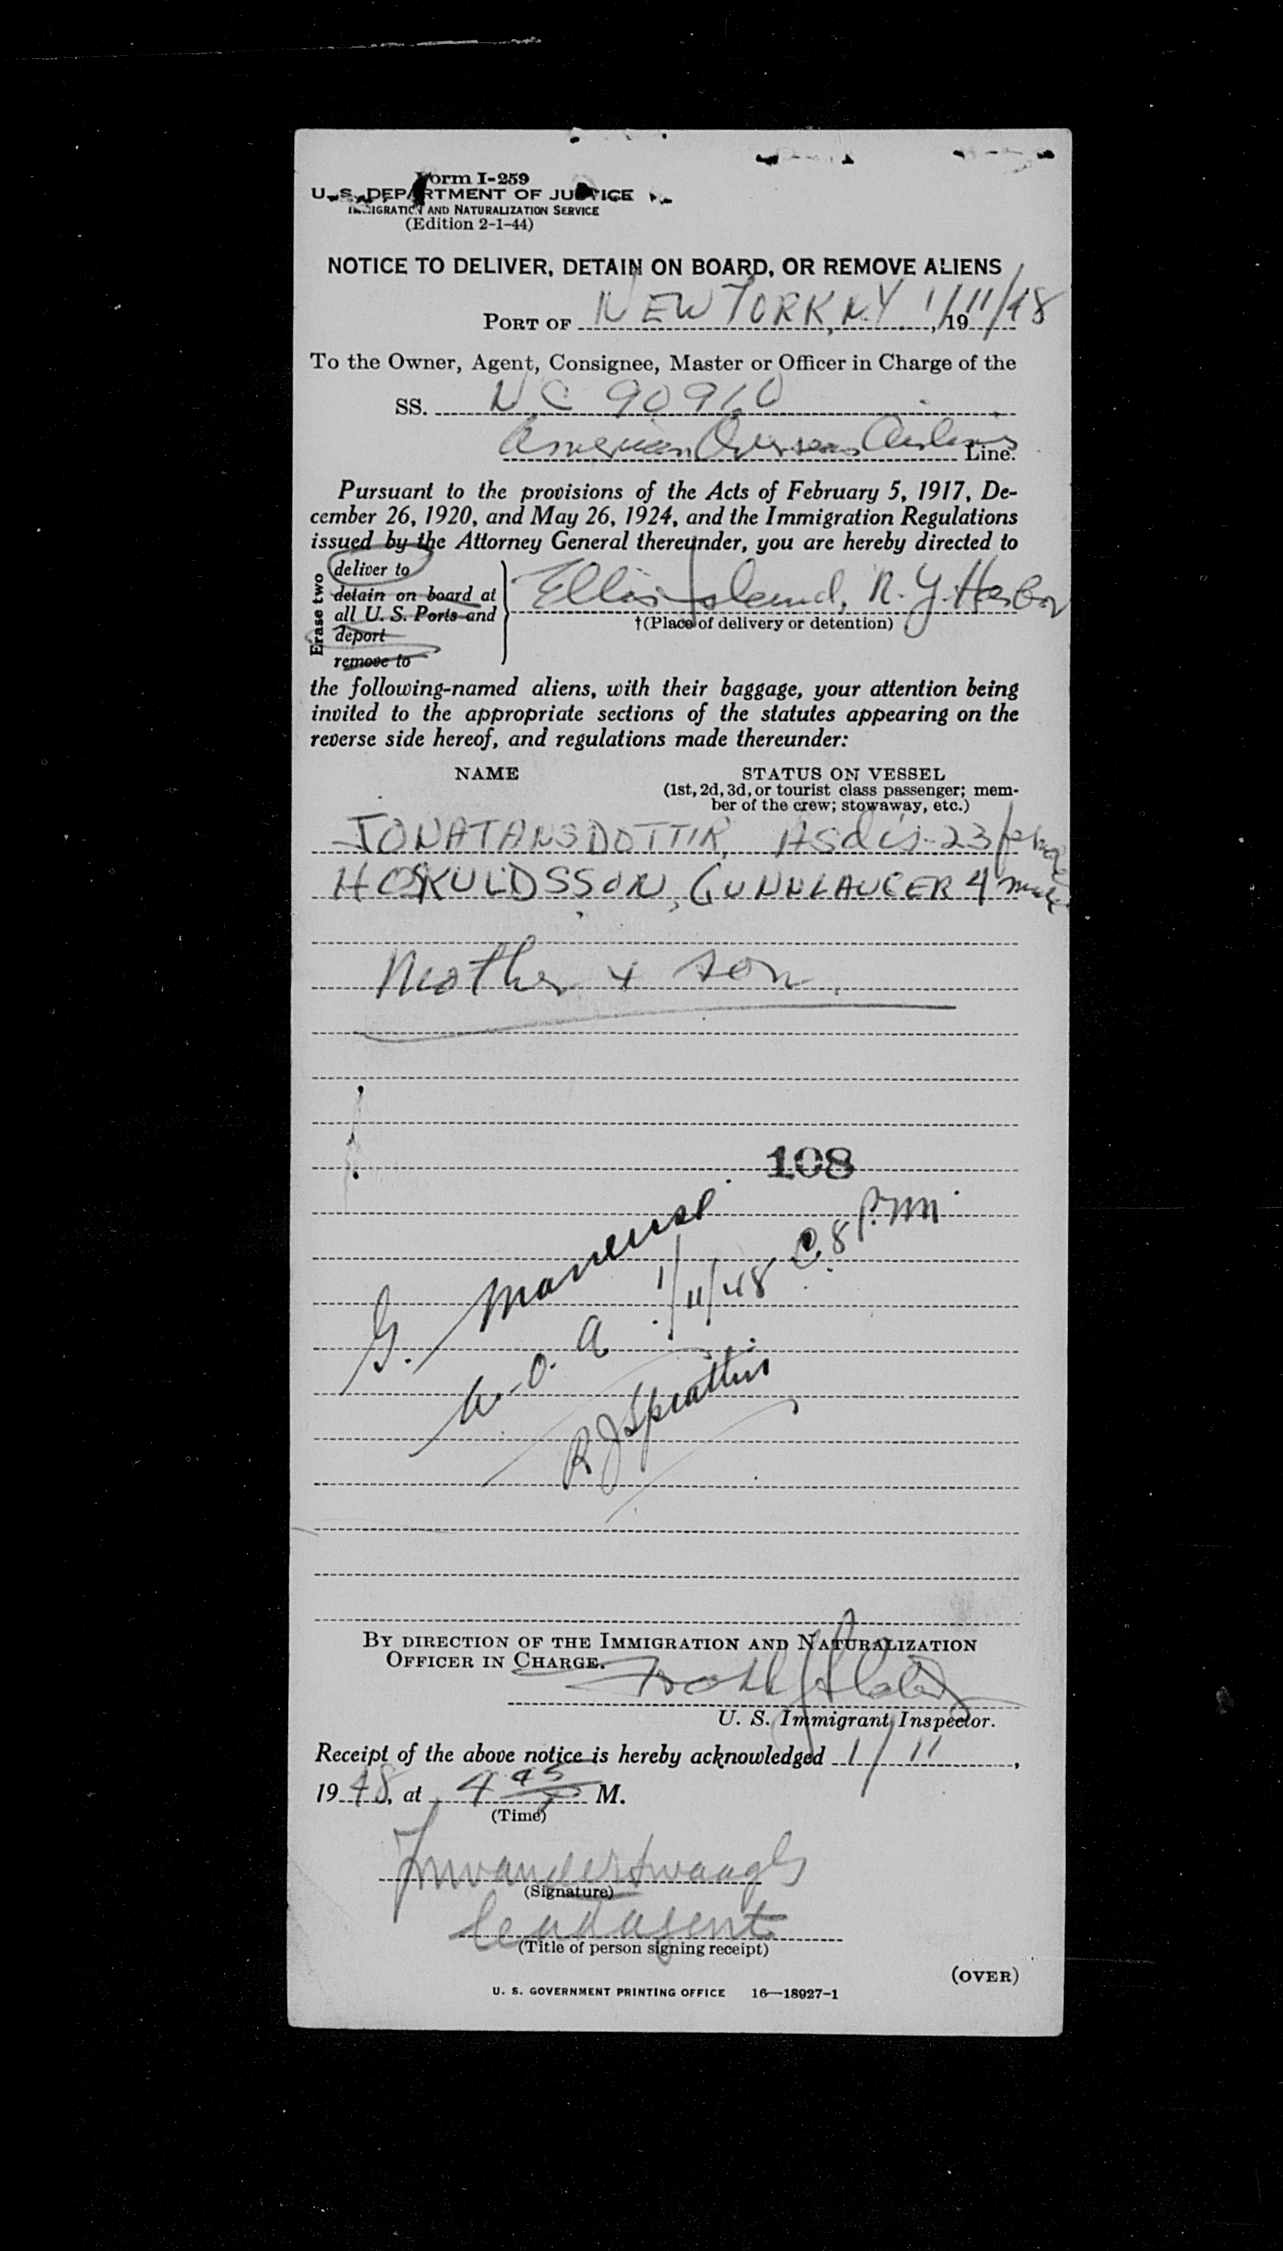 Form I-259
U. S. DEPARTMENT OF JUSTICE
IMMIGRATION AND NATURALIZATION SERVICE
(Edition 2-1-44)
NOTICE TO DELIVER, DETAIN ON BOARD, OR REMOVE ALIENS
PORT OF NEW YORK, N.Y. 1/11/48, 19
To the Owner, Agent, Consignee, Master or Officer in Charge of the
SS. NC 90910
American Overseas Airlines Line.
Pursuant to the provisions of the Acts of February 5, 1917, De-
cember 26, 1920, and May 26, 1924, and the Immigration Regulations
issued by the Attorney General thereunder, you are hereby directed to
Erase two
deliver to
detain on board at
all U. S. Ports and
deport
remove to
Ellis Island, N. Y. Harbor
†(Place of delivery or detention)
the following-named aliens, with their baggage, your attention being
invited to the appropriate sections of the statutes appearing on the
reverse side hereof, and regulations made thereunder:
NAME STATUS ON VESSEL
(1st, 2d, 3d, or tourist class passenger; mem-
ber of the crew; stowaway, etc.)
JONATANSDOTTIR, Asdis 23 female
HOSKULDSSON, GUNNLAUGER 4 male
Mother + son.
108
G.
1/11/48 @ 8 P.m.
R J
BY DIRECTION OF THE IMMIGRATION AND NATURALIZATION
OFFICER IN CHARGE.
U. S. Immigrant Inspector.
Receipt of the above notice is hereby acknowledged 1/11,
1948, at 4 45 M.
(Time)
(Signature)
lead agent
(Title of person signing receipt)
(OVER)
U. S. GOVERNMENT PRINTING OFFICE 16—18927-1